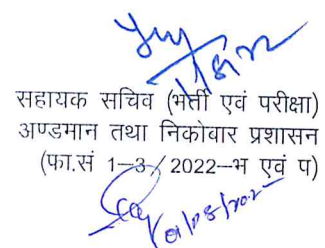 सहायक सचिव (भर्ती एवं परीक्षा)
अण्डमान तथा निकोबार प्रशासन
(फा.सं 1–3/2022–भ एवं प)